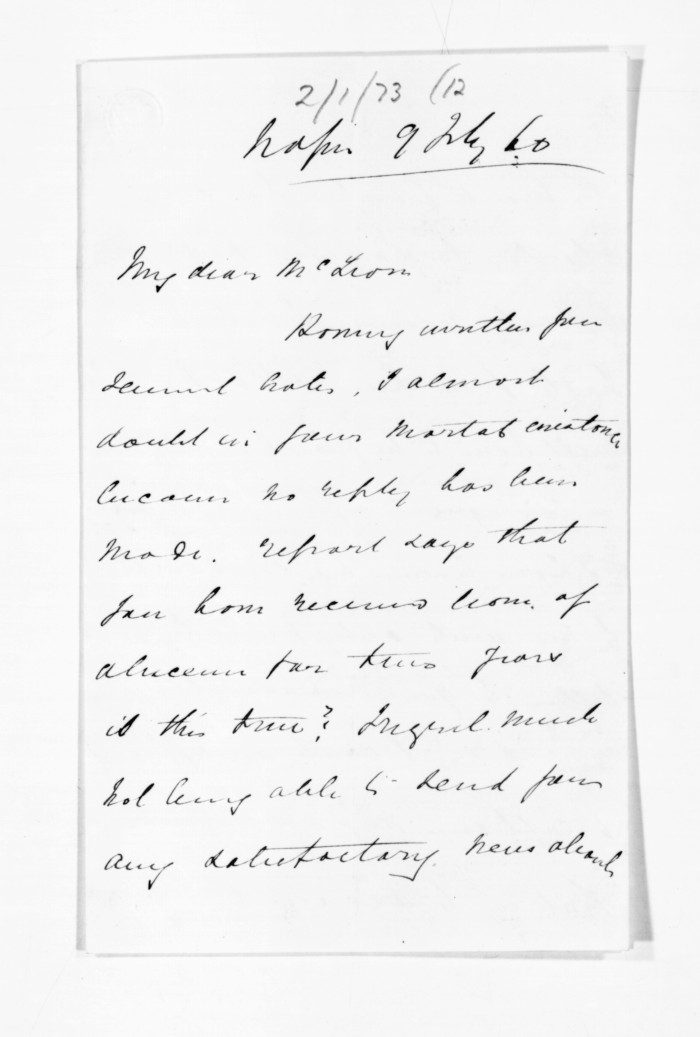 2/1/73 (12
Napier 9 July 60
My dear McLean
Having written you
several notes, I almost
doubt in your mortal existence
because no reply has been
made. report says that
you have received leave of
absence for two years
is this true? I regret much
not being able to send you
any satisfactory news about